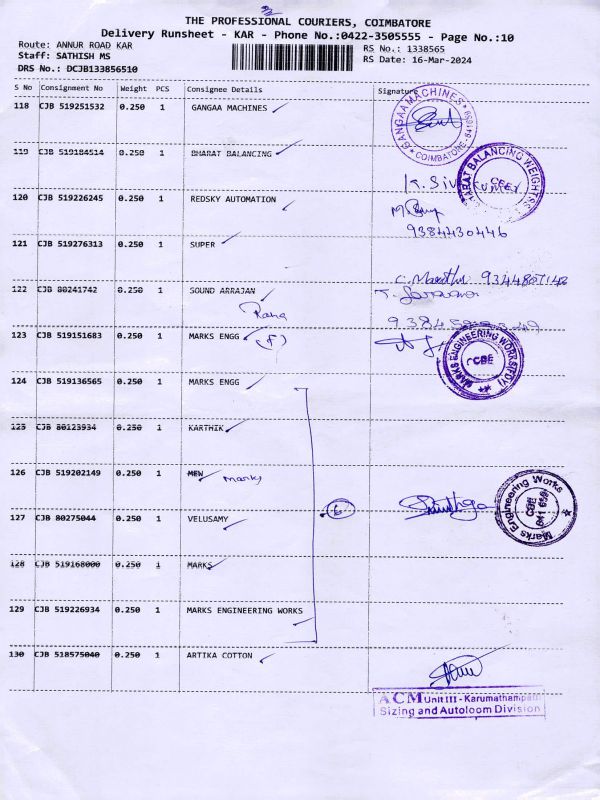 THE PROFESSIONAL COURIERS, COIMBATORE
Delivery Runsheet - KAR - Phone No.:0422-3505555 - Page No.:10
Route: ANNUR ROAD KAR
RS No.: 1338565
Staff: SATHISH MS
RS Date: 16-Mar-2024
DRS No.: DCJB133856510
S No Consignment No Weight PCS Consignee Details Signature
118 CJB 519251532 0.250 1 GANGAA MACHINES
GANGAA MACHINES COIMBATORE
119 CJB 519184514 0.250 1 BHARAT BALANCING
BHARAT BALANCING WEIGHTSS CBE
120 CJB 519226245 0.250 1 REDSKY AUTOMATION
9384430446
121 CJB 519276313 0.250 1 SUPER
122 CJB 80241742 0.250 1 SOUND ARRAJAN
123 CJB 519151683 0.250 1 MARKS ENGG (F)
MARKS ENGINEERING WORKS(TDY) CBE
124 CJB 519136565 0.250 1 MARKS ENGG
125 CJB 80123934 0.250 1 KARTHIK
126 CJB 519202149 0.250 1 MEW marks
6
Marks Engineering Works CBE
127 CJB 80275044 0.250 1 VELUSAMY
128 CJB 519168000 0.250 1 MARKS
129 CJB 519226934 0.250 1 MARKS ENGINEERING WORKS
130 CJB 518575040 0.250 1 ARTIKA COTTON
ACM Unit III - Karumathampatti
Sizing and Autoloom Division